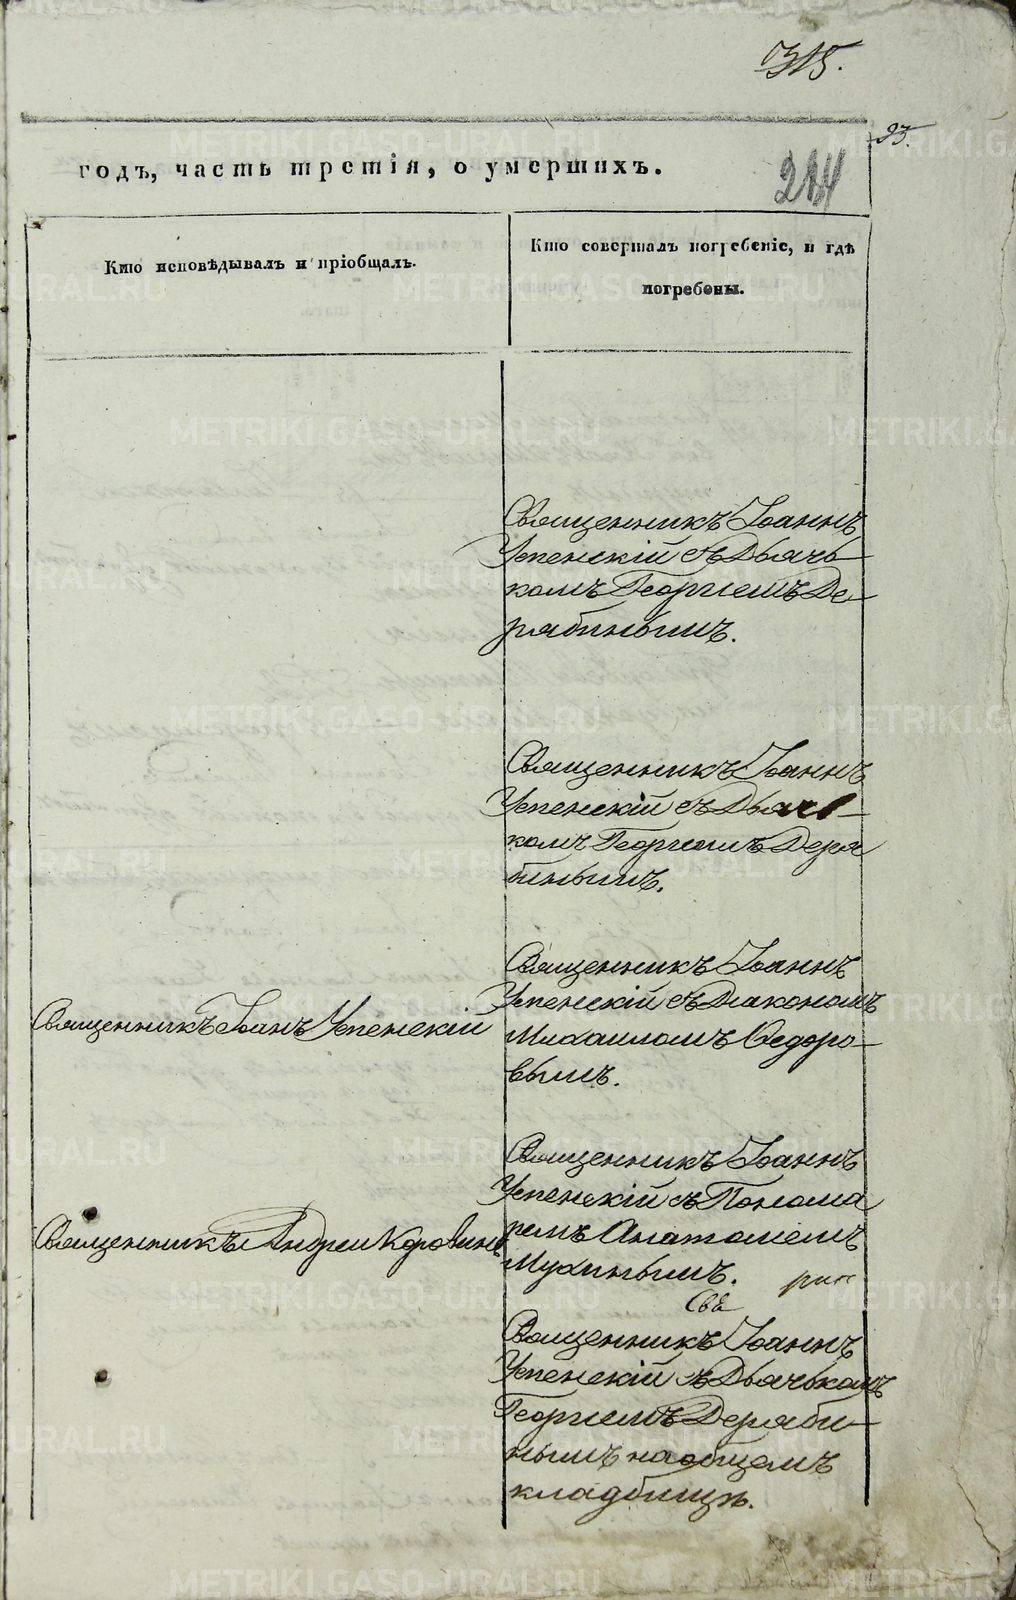 315.
23.
годъ, часть третія, о умершихъ.
Кто исповѣдывалъ и пріобщалъ.
Кто совершалъ погребеніе, и гдѣ
погребены.
Священникъ Іоаннъ
Успенскій съ Дьячь-
комъ Георгіемъ Де-
рябинымъ.
Священникъ Іоаннъ
Успенскій съ Дьячь-
комъ Георгіемъ Деря
бинымъ.
Священникъ Іоаннъ
Успенскій съ Діакономъ
Михаиломъ Ѳедоро-
вымъ.
Священникъ Іоанъ Успенскій
Священникъ Іоаннъ
Успенскій съ Понома
ремъ Анатоліемъ
Мухинымъ.
Священникъ Андрей Коровинъ
Свя
Священникъ Іоаннъ
Успенскій съ Дьячькомъ
Георгіемъ Деряби-
нымъ на общемъ
кладбищѣ.
METRIKI.GASO-URAL.RU